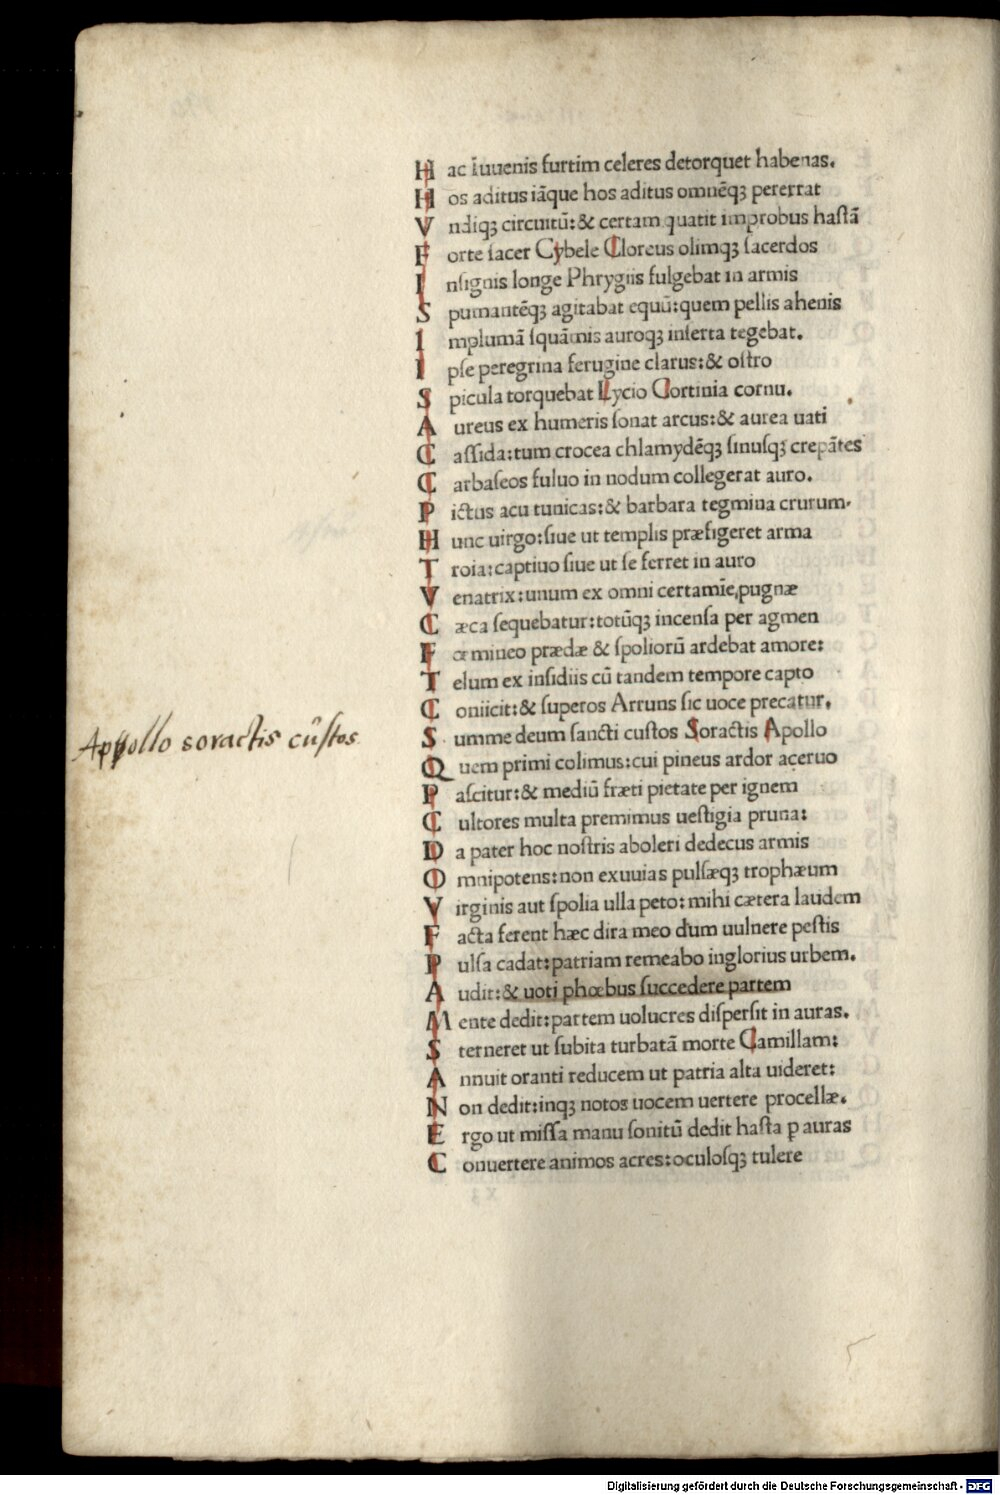 H ac iuuenis furtim celeres detorquet habenas.
H os aditus iãque hos aditus omnẽqʒ pererrat
V ndiqʒ circuitũ:& certam quatit improbus hastã
F orte sacer Cybele Cloreus olimqʒ sacerdos
I nsignis longe Phrygiis fulgebat in armis
S pumantẽqʒ agitabat equũ:quem pellis ahenis
I mplumã squãmis auroqʒ inserta tegebat.
I pse peregrina ferugine clarus:& ostro
S picula torquebat Lycio Cortinia cornu.
A ureus ex humeris sonat arcus:& aurea uati
C assida:tum crocea chlamydẽqʒ sinusqʒ crepãtes
C arbaseos fuluo in nodum collegerat auro.
P ictus acu tunicas:& barbara tegmina crurum.
H unc uirgo:siue ut templis præfigeret arma
T roia:captiuo siue ut se ferret in auro
V enatrix:unum ex omni certamĩe,pugnæ
C æca sequebatur:totũqʒ incensa per agmen
F œmineo prædæ & spoliorũ ardebat amore:
T elum ex insidiis cũ tandem tempore capto
C oniicit:& superos Arruns sic uoce precatur.
Appollo soractis custos
S umme deum sancti custos Soractis Apollo
Q uem primi colimus:cui pineus ardor aceruo
P ascitur:& mediũ fræti pietate per ignem
C ultores multa premimus uestigia pruna:
D a pater hoc nostris aboleri dedecus armis
O mnipotens:non exuuias pulsæqʒ trophæum
V irginis aut spolia ulla peto:mihi cætera laudem
F acta ferent hæc dira meo dum uulnere pestis
P ulsa cadat:patriam remeabo inglorius urbem.
A udit:& uoti phœbus succedere partem
M ente dedit:partem uolucres dispersit in auras.
S terneret ut subita turbatã morte Camillam:
A nnuit oranti reducem ut patria alta uideret:
N on dedit:inqʒ notos uocem uertere procellæ.
E rgo ut missa manu sonitũ dedit hasta p auras
C onuertere animos acres:oculosqʒ tulere
Digitalisierung gefördert durch die Deutsche Forschungsgemeinschaft - DFG